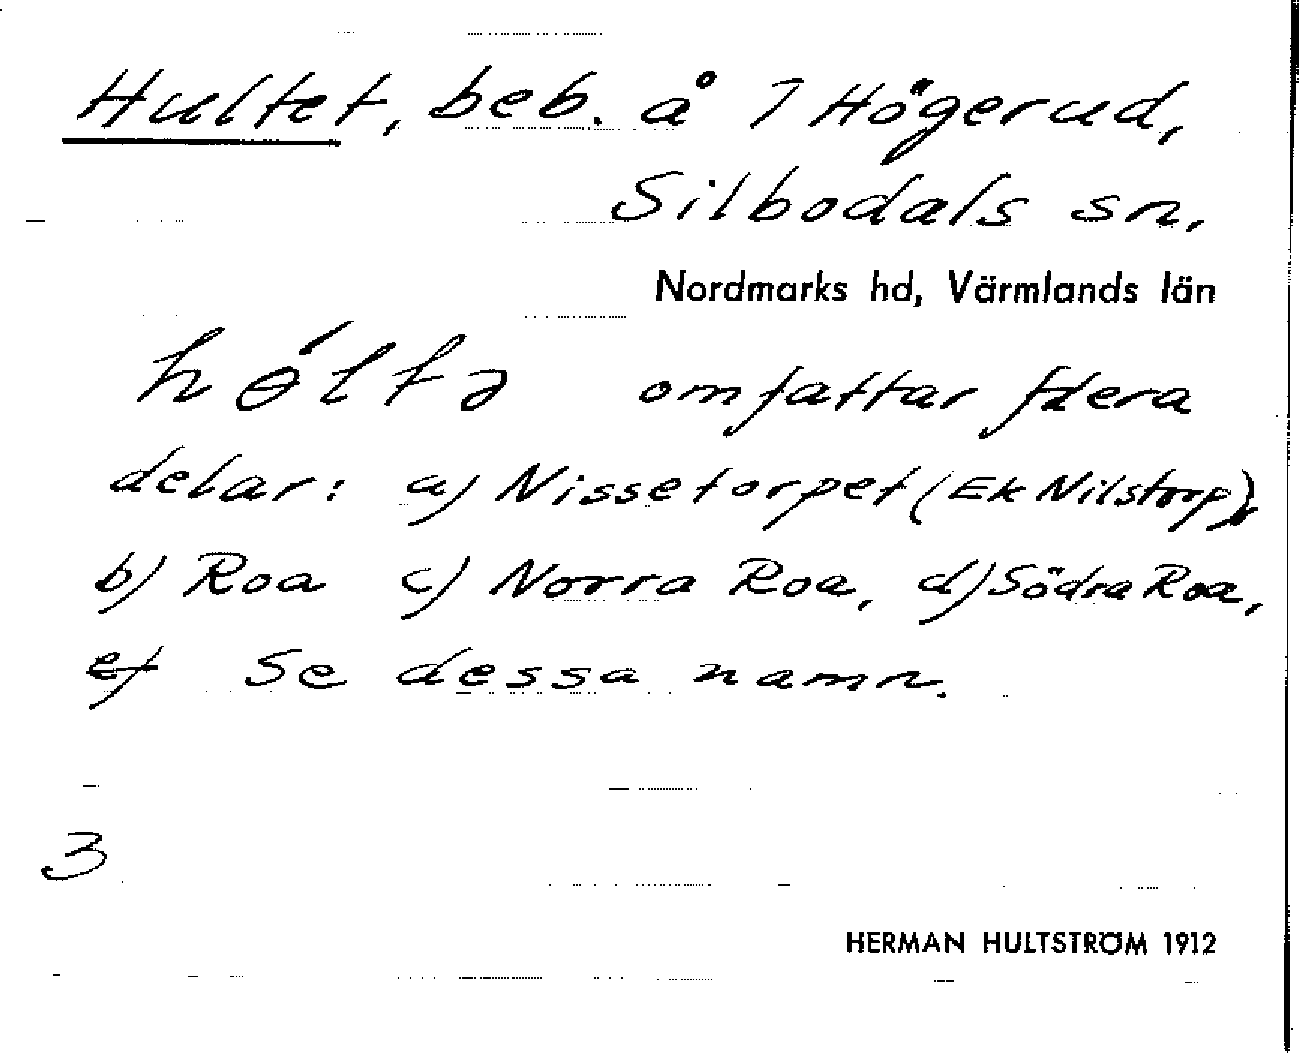 Hultet, beb. å 1 Högerud,
Silbodals sn.
Nordmarks hd, Värmlands län
hɵ́ltə omfattar flera
delar: a) Nissetorpet (Ek Nilstorp),
b) Roa c) Norra Roa, d) Södra Roa,
Se dessa namn.
3
HERMAN HULTSTRÖM 1912